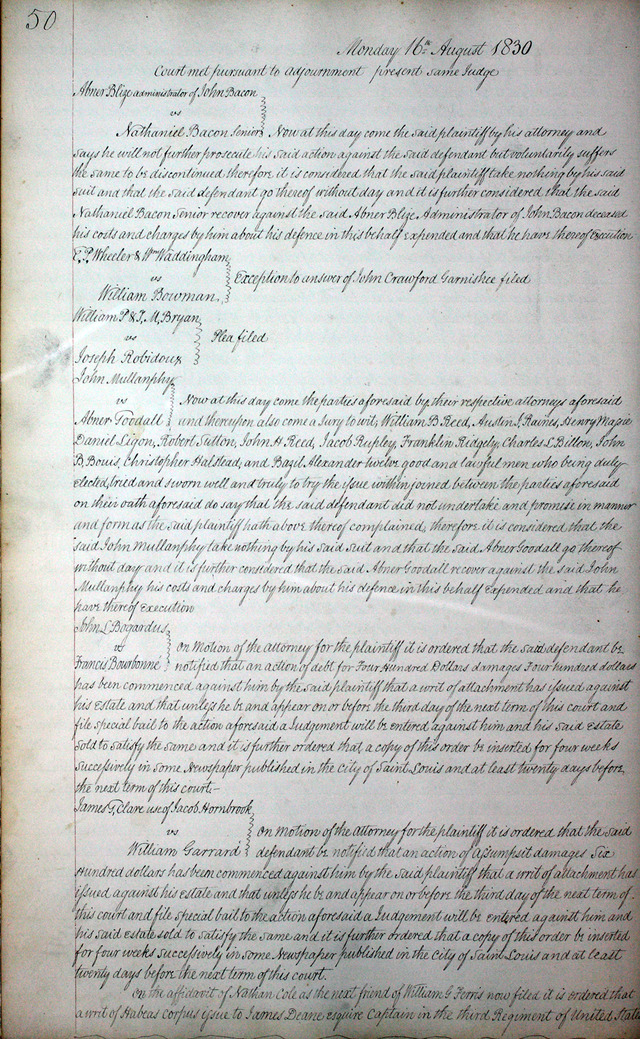 50
Monday 16th August 1830
Court met pursuant to adjournment present same Judge
Abner Blize administrator of John Bacon
vs
Nathaniel Bacon Senior Now at this day come the said plaintiff by his attorney and
says he will not further prosecute his said action against the said defendant but voluntarily suffers
the same to be discontinued therefore it is considered that the said plaintiff take nothing by his said
suit and that the said defendant go thereof without day and it is further considered that the said
Nathaniel Bacon Senior recover against the said Abner Blize Administrator of John Bacon deceased
his costs and charges by him about his defence in this behalf expended and that he have thereof Execution
Wheeler & Wm Waddingham
vs Exception to answer of John Crawford Garnishee filed
William Bowman
William P & J. M. Bryan
vs Plea filed
Joseph Robidoux
John Mullanphy
vs Now at this day come the parties aforesaid by their respective attorneys aforesaid
Abner Goodall and thereupon also come a Jury to wit, William B Reed, Austin J. Raines, Henry Magie
Daniel Ligon, Robert Sutton, John H. Reed, Jacob Rupley, Franklin Ridgely, Charles L. Billon, John
B, Bouis, Christopher Halstead, and Bazil Alexander twelve good and lawful men who being duly
elected, tried and sworn well and truly to try the issue within joined between the parties aforesaid
on their oath aforesaid do say that the said defendant did not undertake and promise in manner
and form as the said plaintiff hath above thereof complained, therefore it is considered that the
said John Mullanphy take nothing by his said Suit and that the said Abner Goodall go thereof
without day and it is further considered that the said Abner Goodall recover against the said John
Mullanphy his costs and charges by him about his defence in this behalf Expended and that he
have thereof execution
John L Bogardus
vs on Motion of the attorney for the plaintiff it is ordered that the said defendant be
Francis Bourbonne notified that an action of debt for Four Hundred Dollars damages Four hundred dollars
has been commenced against him by the said plaintiff that a writ of attachment has issued against
his estate and that unless he be and appear on or before the third day of the next term of this court and
file special bail to the action aforesaid a Judgement will be entered against him and his said Estate
sold to satisfy the same and it is further ordered that a copy of this order be inserted for four weeks
successively in some Newspaper published in the city of Saint Louis and at least twenty days before
the next term of this court-
James G, Clare use of Jacob Hornbrook
vs on Motion of the Attorney for the plaintiff it is ordered that the said
William Garrard defendant be notified that an action of Assumpsit damages Six
Hundred dollars has been commenced against him by the said plaintiff that a writ of attachment has
issued against his estate and that unless he be and appear on or before the third day of the next term of-
this court and file special bail to the action aforesaid a Judgement will be entered against him and
his said estate sold to satisfy the same and it is further ordered that a copy of this order be inserted
for four weeks successively in some Newspaper published in the city of Saint Louis and at least
twenty days before the next term of this court.
on the affidavit of Nathan Cole as the next friend of William G Ferris now filed it is ordered that
a writ of Habeas corpus issue to James Deane esquire Captain in the third Regiment of United